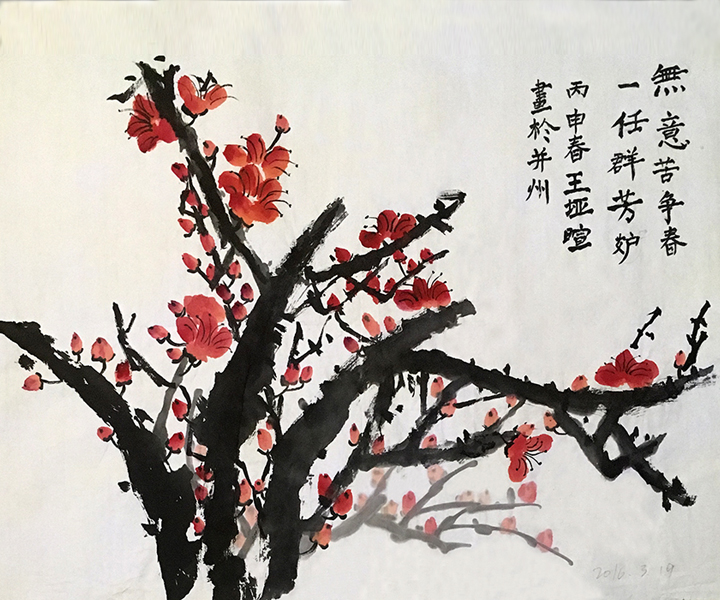 無意苦争春
一任群芳妒
丙申春王垭暄
畫於并州
2016.3.19